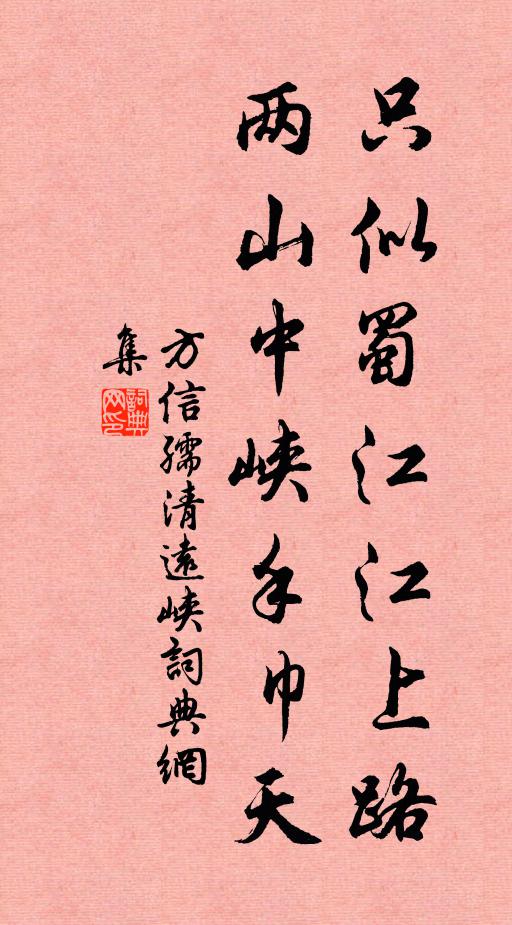 只似蜀江江上路
两山中峡手巾天
方信孺清遠峡詞典網
集
詞典網印